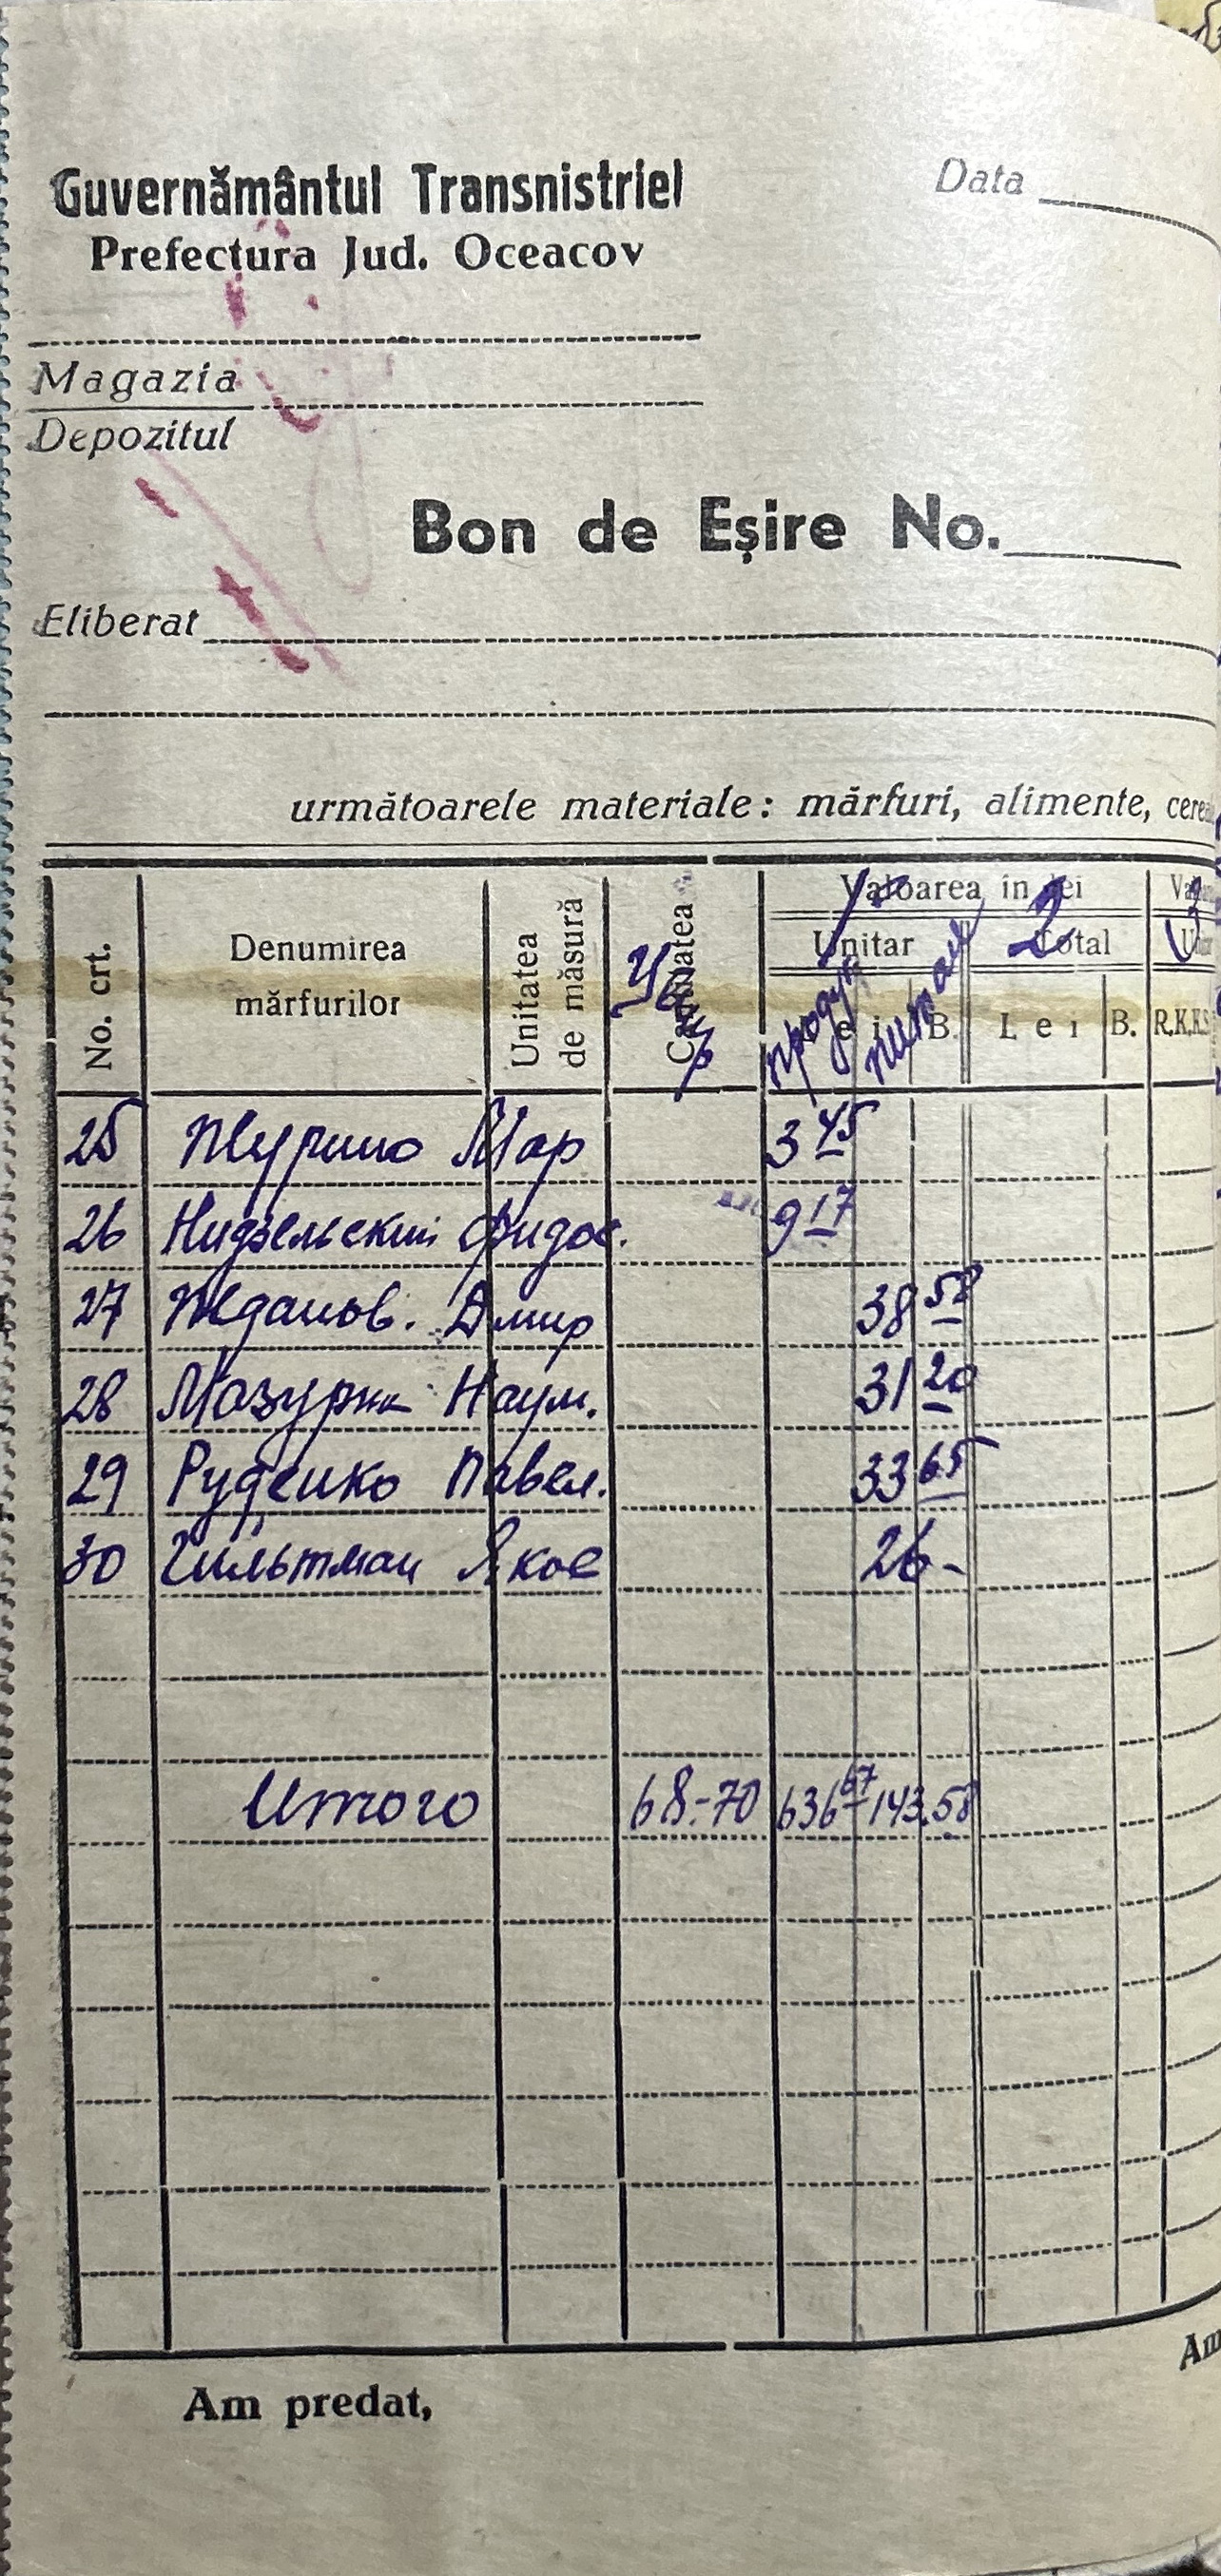 Guvernământul Transnistriei
Data
Prefectura Jud. Oceacov
Magazia
Depozitul
Bon de Eșire No.
Eliberat
următoarele materiale: mărfuri, alimente,
No. crt.
Denumirea mărfurilor
Unitatea de măsură
Cantitatea
Valoarea în lei
Unitar
Total
2
Lei B.
Lei B.
продук
питан
25 Журило Мар 3 45
26 Нидзельский Фидос. 9 17
27 Жданов. Дмир 38 58
28 Мазурик Наум. 31 20
29 Руденко Павел. 33 65
30 Гильтман Яков 26-
Итого 68.-70 636 67 143.58
Am predat,